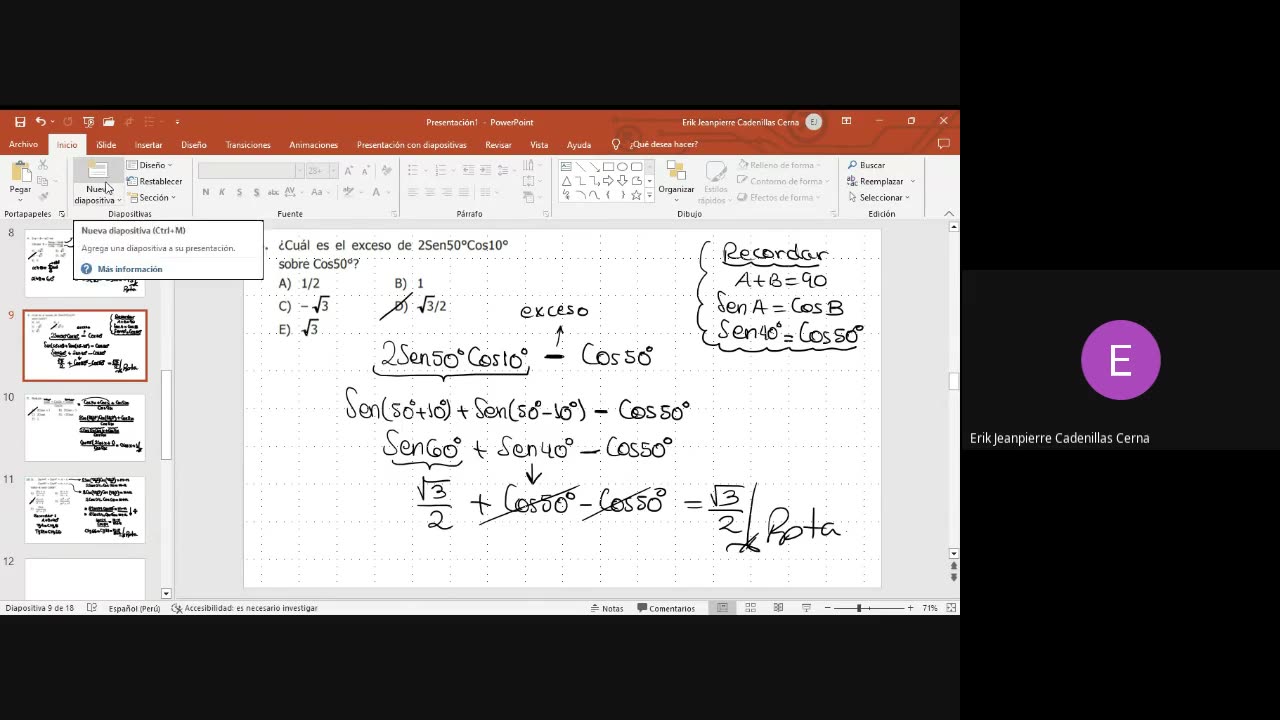 Presentación1 - PowerPoint
Erik Jeanpierre Cadenillas Cerna EJ
Archivo Inicio iSlide Insertar Diseño Transiciones Animaciones Presentación con diapositivas Revisar Vista Ayuda ¿Qué desea hacer?
Pegar
Nueva diapositiva
Diseño
Restablecer
Sección
25+
N K S S abc AV Aa A
Organizar
Estilos rápidos
Relleno de forma
Contorno de forma
Efectos de forma
Buscar
Reemplazar
Seleccionar
Portapapeles Diapositivas Fuente Párrafo Dibujo Edición
Nueva diapositiva (Ctrl+M)
Agrega una diapositiva a su presentación.
Más información
8
9
10
11
12
¿Cuál es el exceso de 2Sen50°Cos10°
sobre Cos50°?
A) 1/2 B) 1
C) -√3 D) √3/2
E) √3
Recordar
A+B=90
Sen A = Cos B
Sen40° = Cos50°
exceso
2Sen50°Cos10° - Cos50°
Sen(50°+10°) + Sen(50°-10°) - Cos50°
Sen60° + Sen40° - Cos50°
√3/2 + Cos50° - Cos50° = √3/2 Rpta
Diapositiva 9 de 18 Español (Perú) Accesibilidad: es necesario investigar Notas Comentarios 71%
E
Erik Jeanpierre Cadenillas Cerna